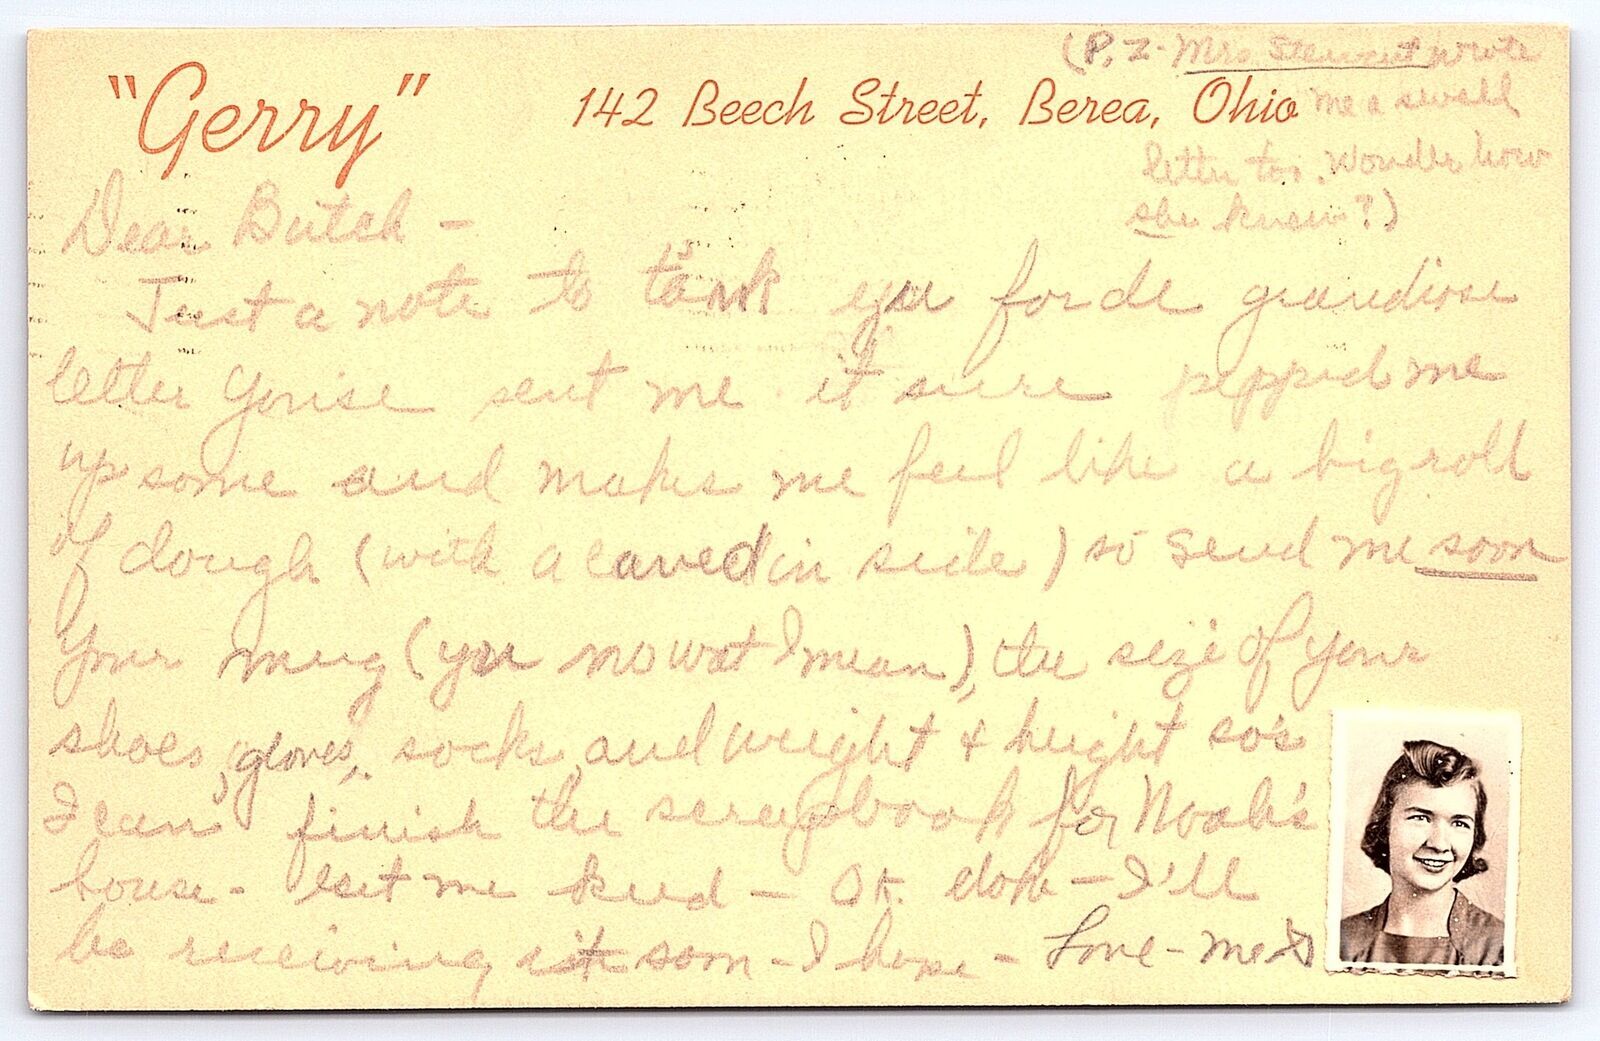 "Gerry" 142 Beech Street, Berea, Ohio
(P.S - Mrs Stewart wrote
me a swell
letter too. Wonder how
she knew?)
Dear Butch -
Just a note to tank you for de grandiose
letter youise sent me. it sure pepped me
up some and makes me feel like a big roll
of dough (with a caved in side) so send me soon
your mug (you no wat I mean), the size of your
shoes, gloves, socks, and weight & height so's
I can finish the scrapbook for Noah's
house - let me - OK. don - I'll
be receiving it soon - I hope - Love - Me